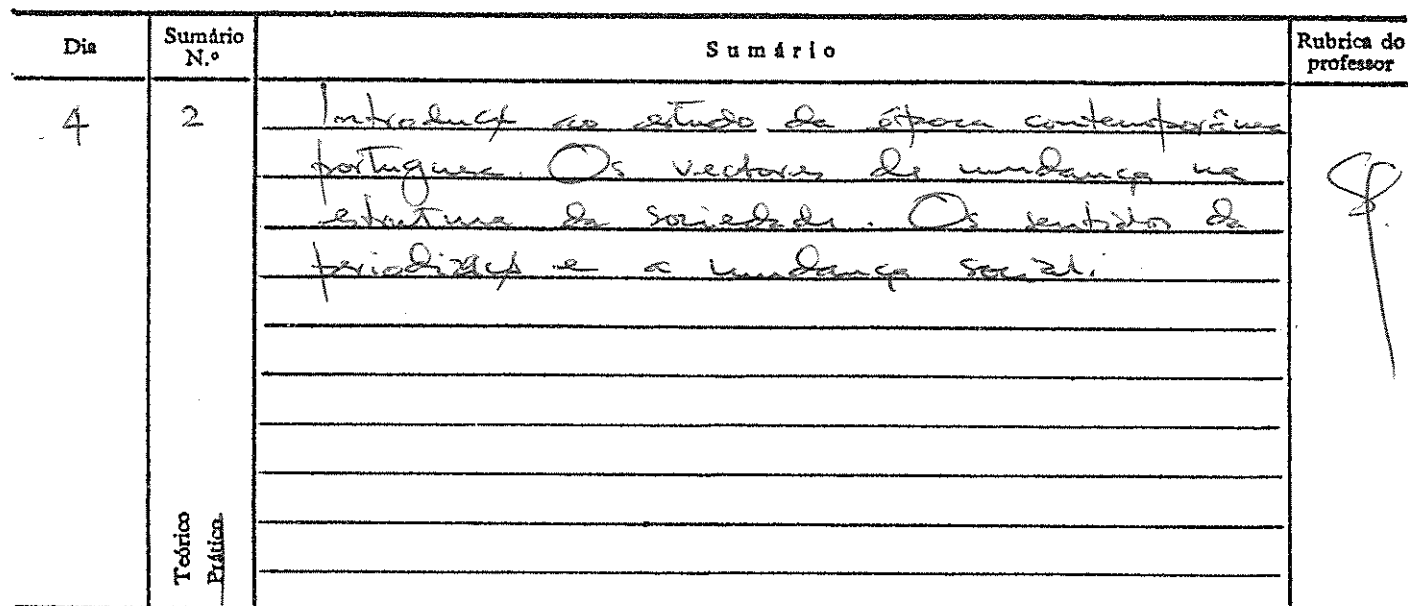 Dia Sumário N.º Sumário Rubrica do professor
4 2 Introdução ao estudo da época contemporânea
portuguesa. Os vectores de mudança na
estrutura da sociedade. Os sentidos da
periodização e a mudança social.
Teórico
Prático